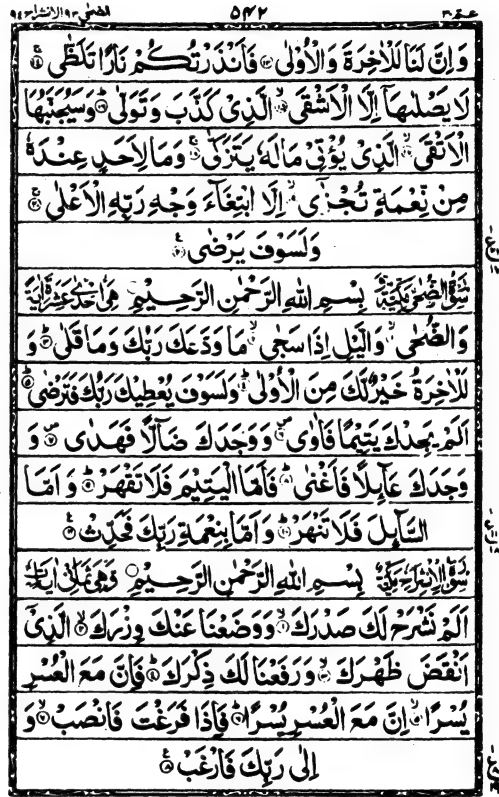 عمّ ٣٠ ٥٤٢ الضحى ٩٣ الانشراح ٩٤
وَاِنَّ لَنَا لَلْاٰخِرَةَ وَالْاُوْلٰى ۝١٣ فَاَنْذَرْتُكُمْ نَارًا تَلَظّٰى ۝١٤
لَا يَصْلٰىهَاۤ اِلَّا الْاَشْقَى ۝١٥ الَّذِىْ كَذَّبَ وَتَوَلّٰى ۝١٦ وَسَيُجَنَّبُهَا
الْاَتْقَى ۝١٧ الَّذِىْ يُؤْتِىْ مَالَهٗ يَتَزَكّٰى ۝١٨ وَمَا لِاَحَدٍ عِنْدَهٗ
مِنْ نِّعْمَةٍ تُجْزٰٓى ۝١٩ اِلَّا ابْتِغَآءَ وَجْهِ رَبِّهِ الْاَعْلٰى ۝٢٠
وَلَسَوْفَ يَرْضٰى ۝٢١
سُوْرَةُ الضُّحٰى مَكِّيَّةٌ بِسْمِ اللهِ الرَّحْمٰنِ الرَّحِيْمِ هِىَ اِحْدٰى عَشْرَةَ اٰيَةً
وَالضُّحٰى ۝١ وَالَّيْلِ اِذَا سَجٰى ۝٢ مَا وَدَّعَكَ رَبُّكَ وَمَا قَلٰى ۝٣ وَ
لَلْاٰخِرَةُ خَيْرٌ لَّكَ مِنَ الْاُوْلٰى ۝٤ وَلَسَوْفَ يُعْطِيْكَ رَبُّكَ فَتَرْضٰى ۝٥
اَلَمْ يَجِدْكَ يَتِيْمًا فَاٰوٰى ۝٦ وَوَجَدَكَ ضَآلًّا فَهَدٰى ۝٧ وَ
وَجَدَكَ عَآئِلًا فَاَغْنٰى ۝٨ فَاَمَّا الْيَتِيْمَ فَلَا تَقْهَرْ ۝٩ وَاَمَّا
السَّآئِلَ فَلَا تَنْهَرْ ۝١٠ وَاَمَّا بِنِعْمَةِ رَبِّكَ فَحَدِّثْ ۝١١
سُوْرَةُ الْاِنْشِرَاحِ مَكِّيَّةٌ بِسْمِ اللهِ الرَّحْمٰنِ الرَّحِيْمِ وَهِىَ ثَمَانِىْ اٰيَاتٍ
اَلَمْ نَشْرَحْ لَكَ صَدْرَكَ ۝١ وَوَضَعْنَا عَنْكَ وِزْرَكَ ۝٢ الَّذِىْۤ
اَنْقَضَ ظَهْرَكَ ۝٣ وَرَفَعْنَا لَكَ ذِكْرَكَ ۝٤ فَاِنَّ مَعَ الْعُسْرِ
يُسْرًا ۝٥ اِنَّ مَعَ الْعُسْرِ يُسْرًا ۝٦ فَاِذَا فَرَغْتَ فَانْصَبْ ۝٧ وَ
اِلٰى رَبِّكَ فَارْغَبْ ۝٨